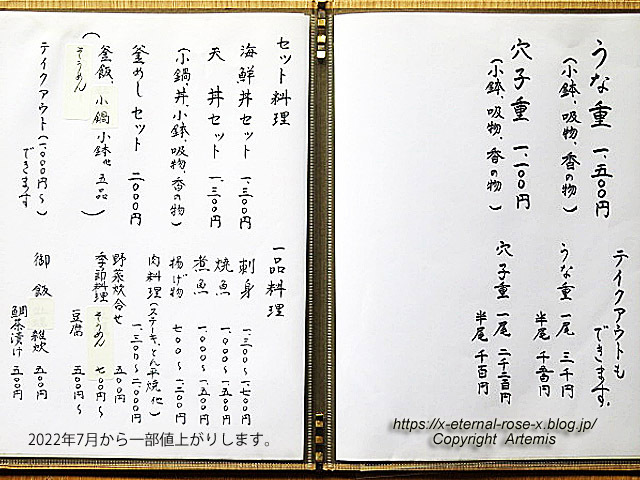 うな重 一、五〇〇円
(小鉢、吸物、香の物)
穴子重 一、一〇〇円
(小鉢、吸物、香の物)
テイクアウトも
できます。
うな重 一尾 三千円
半尾 千五百円
穴子重 一尾 二千二百円
半尾 千百円
セット料理
海鮮丼セット 一、三〇〇円
天丼セット 一、三〇〇円
(小鍋、丼、小鉢、吸物、香の物)
釜めしセット 二、〇〇〇円
(釜飯、小鍋、小鉢他 五品)
そうめん
テイクアウト(一、〇〇〇円~)
できます
一品料理
刺身 一、三〇〇~一、七〇〇円
焼魚 一、〇〇〇~一、五〇〇円
煮魚 一、〇〇〇~一、五〇〇円
揚げ物 七〇〇~一、二〇〇円
肉料理(ステーキ、とん平焼他)
一、三〇〇~二、〇〇〇円
野菜炊合せ 五〇〇円
季節料理 そうめん 七〇〇円~
豆腐 五〇〇円~
御飯 雑炊 五〇〇円
鯛茶漬け 五〇〇円
2022年7月から一部値上がりします。
https://x-eternal-rose-x.blog.jp/
Copyright Artemis